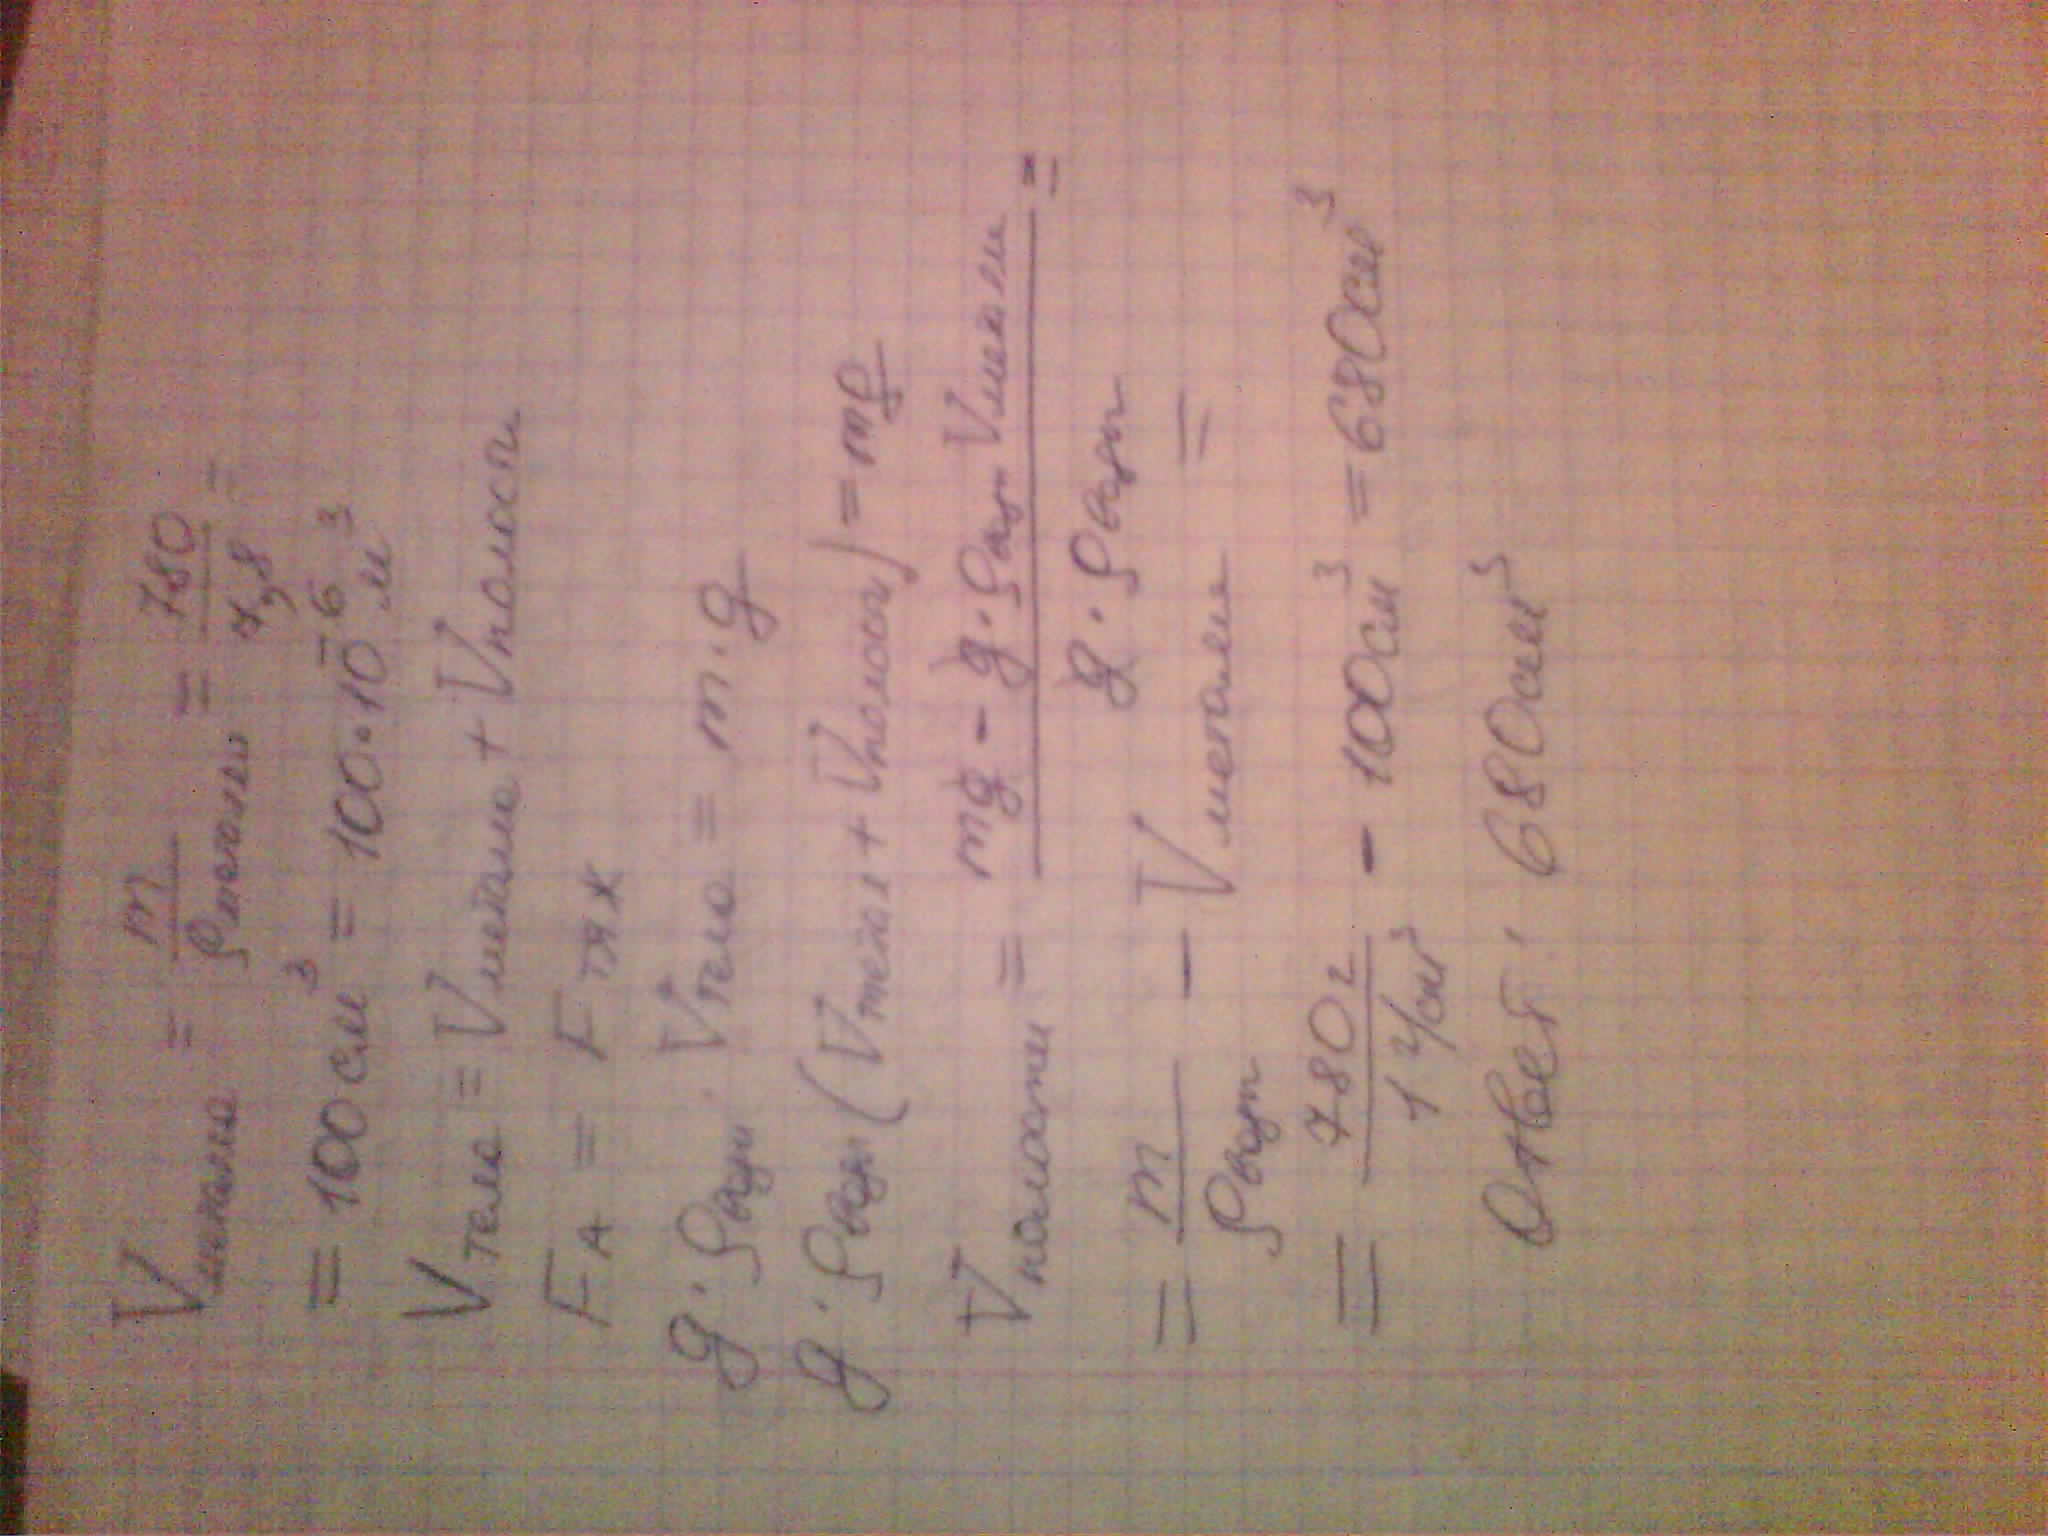 V металла = m / ρ металла = 780 / 7,8 =
= 100 см³ = 100 · 10⁻⁶ м³
V тела = V метала + V полости
F А = F тяж
g · ρ воды · V тела = m · g
g · ρ воды (V метал + V полости) = mg
V полости = mg - g · ρ воды V метали / g · ρ воды =
= m / ρ воды - V метали =
= 780 г / 1 г/см³ - 100 см³ = 680 см³
Ответ: 680 см³